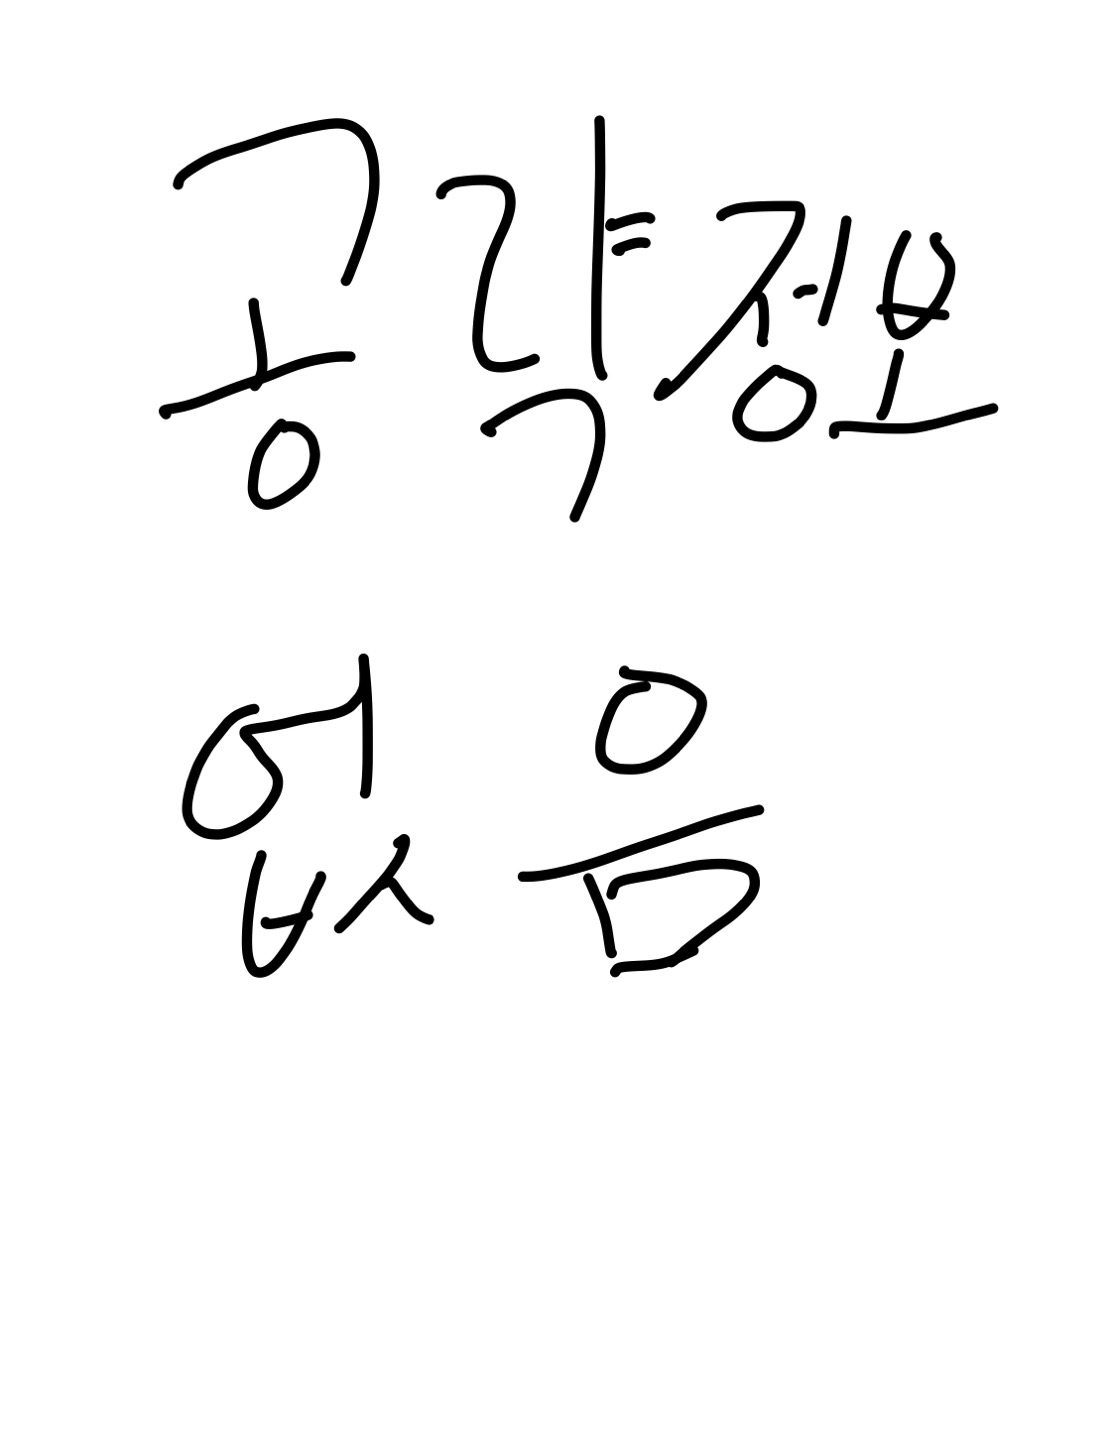 공략정보
없음